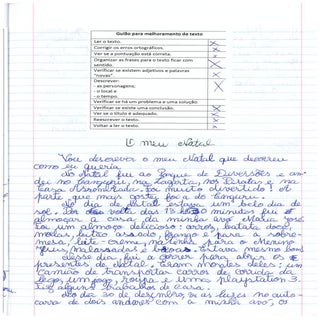 Guião para melhoramento de texto
Ler o texto.
Corrigir os erros ortográficos.
Ver se a pontuação está correta.
Organizar as frases para o texto ficar com
sentido.
Verificar se existem adjetivos e palavras
"novas"
Descrever:
- as personagens;
- o local e
- o tempo.
Verificar se há um problema e uma solução
Verificar se existe uma conclusão.
Ver se o título é adequado.
Reescrever o texto.
Voltar a ler o texto.
O meu Natal
Vou descrever o meu Natal que decorreu
como eu queria.
No Natal fui ao Parque de Diversões e an-
dei no Canguru, na Lagarta, nos Piratas e na
Casa Assombrada. Foi muito divertido! A
parte que mais gostei foi a do Canguru.
No dia de Natal estava um belo dia de
sol. Por volta das 13 minutos fui
almoçar a casa da minha avó Maria José.
Foi um almoço delicioso: arroz, batata doce,
assado, frango e para a sobre-
mesa, leite-creme, o Menino
Jesus, e bolos. Estava mesmo bom!
Nesse dia, fui a correr para abrir os
presentes de Natal. Eram montes deles: um
camião de transportar carros de corrida da
lego, um jogo, roupa e uma playstation 3.
Fui alguns de casa.
No dia 30 de dezembro vi as luzes no auto-
carro de dois andares com a minha avó, o